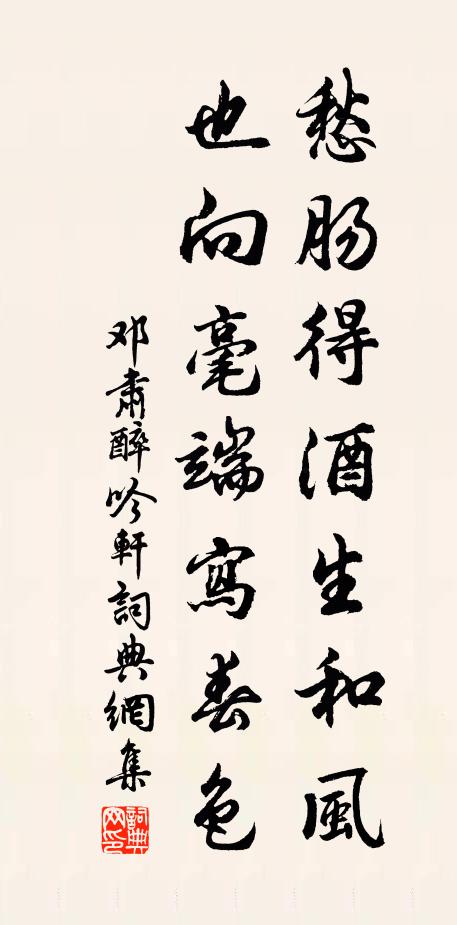 愁肠得酒生和風
也向毫端寫春色
邓肅醉吟軒詞典網集
詞典網印